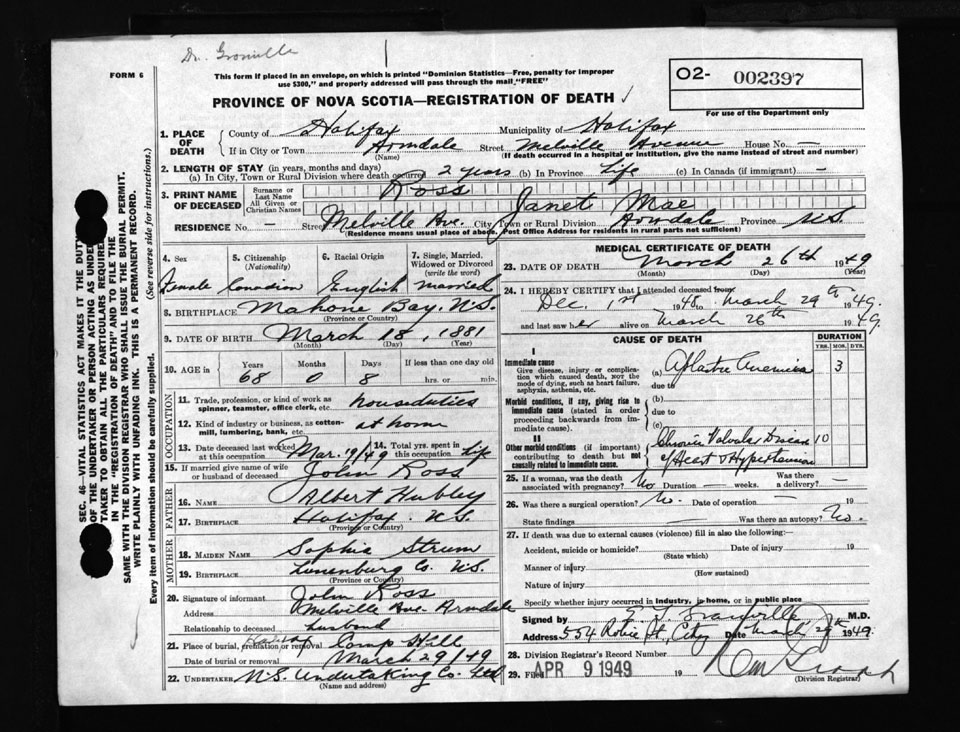 Dr. Granville
FORM 6
This form if placed in an envelope, on which is printed "Dominion Statistics—Free, penalty for improper
use $300," and properly addressed will pass through the mail "FREE"
O2- 002397
For use of the Department only
PROVINCE OF NOVA SCOTIA—REGISTRATION OF DEATH
1. PLACE OF DEATH
County of Halifax Municipality of Halifax
If in City or Town Armdale Street Melville Avenue House No. —
(Name) (If death occurred in a hospital or institution, give the name instead of street and number)
2. LENGTH OF STAY (in years, months and days)
(a) In City, Town or Rural Division where death occurred 2 years (b) In Province Life (c) In Canada (if immigrant) —
3. PRINT NAME OF DECEASED
Surname or Last Name Ross
All Given or Christian Names Janet Mae
RESIDENCE No. — Street Melville Ave. City, Town or Rural Division Armdale Province N.S.
(Residence means usual place of abode. Post Office Address for residents in rural parts not sufficient)
4. Sex
Female
5. Citizenship (Nationality)
Canadian
6. Racial Origin
English
7. Single, Married, Widowed or Divorced (write the word)
married
8. BIRTHPLACE Mahone Bay, N.S.
(Province or Country)
9. DATE OF BIRTH March 18, 1881
(Month) (Day) (Year)
10. AGE in Years Months Days If less than one day old
68 0 8 hrs. or min.
OCCUPATION
11. Trade, profession, or kind of work as spinner, teamster, office clerk, etc. houseduties
12. Kind of industry or business, as cotton-mill, lumbering, bank, etc. at home
13. Date deceased last worked at this occupation Mar. 1949
14. Total yrs. spent in this occupation Life
15. If married give name of wife or husband of deceased John Ross
FATHER
16. NAME Albert Hubley
17. BIRTHPLACE Halifax. N.S.
(Province or Country)
MOTHER
18. MAIDEN NAME Sophia Strum
19. BIRTHPLACE Lunenburg Co. N.S.
(Province or Country)
20. Signature of informant John Ross
Address Melville Ave. Armdale
Relationship to deceased husband
21. Place of burial, cremation or removal Camp Hill
Date of burial or removal March 29/49
22. UNDERTAKER N.S. Undertaking Co. Ltd
(Name and address)
MEDICAL CERTIFICATE OF DEATH
23. DATE OF DEATH March 26th 1949
(Month) (Day) (Year)
24. I HEREBY CERTIFY that I attended deceased from
Dec. 1st 1948 to March 29th 1949.
and last saw her alive on March 26th 1949.
CAUSE OF DEATH
DURATION
YRS. MOS. DYS.
I
Immediate cause
Give disease, injury or complication which caused death, not the mode of dying, such as heart failure, asphyxia, asthenia, etc.
(a) Aplastic Anemia 3
due to
Morbid conditions, if any, giving rise to immediate cause (stated in order proceeding backwards from immediate cause).
(b)
due to
(c)
II
Other morbid conditions (if important) contributing to death but not causally related to immediate cause.
Chronic Valvular Disease 10
of Heart & Hypertension
25. If a woman, was the death associated with pregnancy? No Duration — weeks. Was there a delivery? —
26. Was there a surgical operation? No. Date of operation — 19
State findings — Was there an autopsy? No.
27. If death was due to external causes (violence) fill in also the following:
Accident, suicide or homicide? Date of injury 19
(State which)
Manner of injury
(How sustained)
Nature of injury
Specify whether injury occurred in industry, in home, or in public place
Signed by E. T. Granville M.D.
Address 554 Robie St, City Date March 1949.
28. Division Registrar's Record Number
29. Filed APR 9 1949 19
(Division Registrar)
SEC. 46 - VITAL STATISTICS ACT MAKES IT THE DUTY
OF THE UNDERTAKER OR PERSON ACTING AS UNDER-
TAKER TO OBTAIN ALL THE PARTICULARS REQUIRED
IN THE "REGISTRATION OF DEATH" AND TO FILE THE
SAME WITH THE DIVISION REGISTRAR WHO SHALL ISSUE THE BURIAL PERMIT.
WRITE PLAINLY WITH UNFADING INK. THIS IS A PERMANENT RECORD.
Every item of information should be carefully supplied. (See reverse side for instructions.)